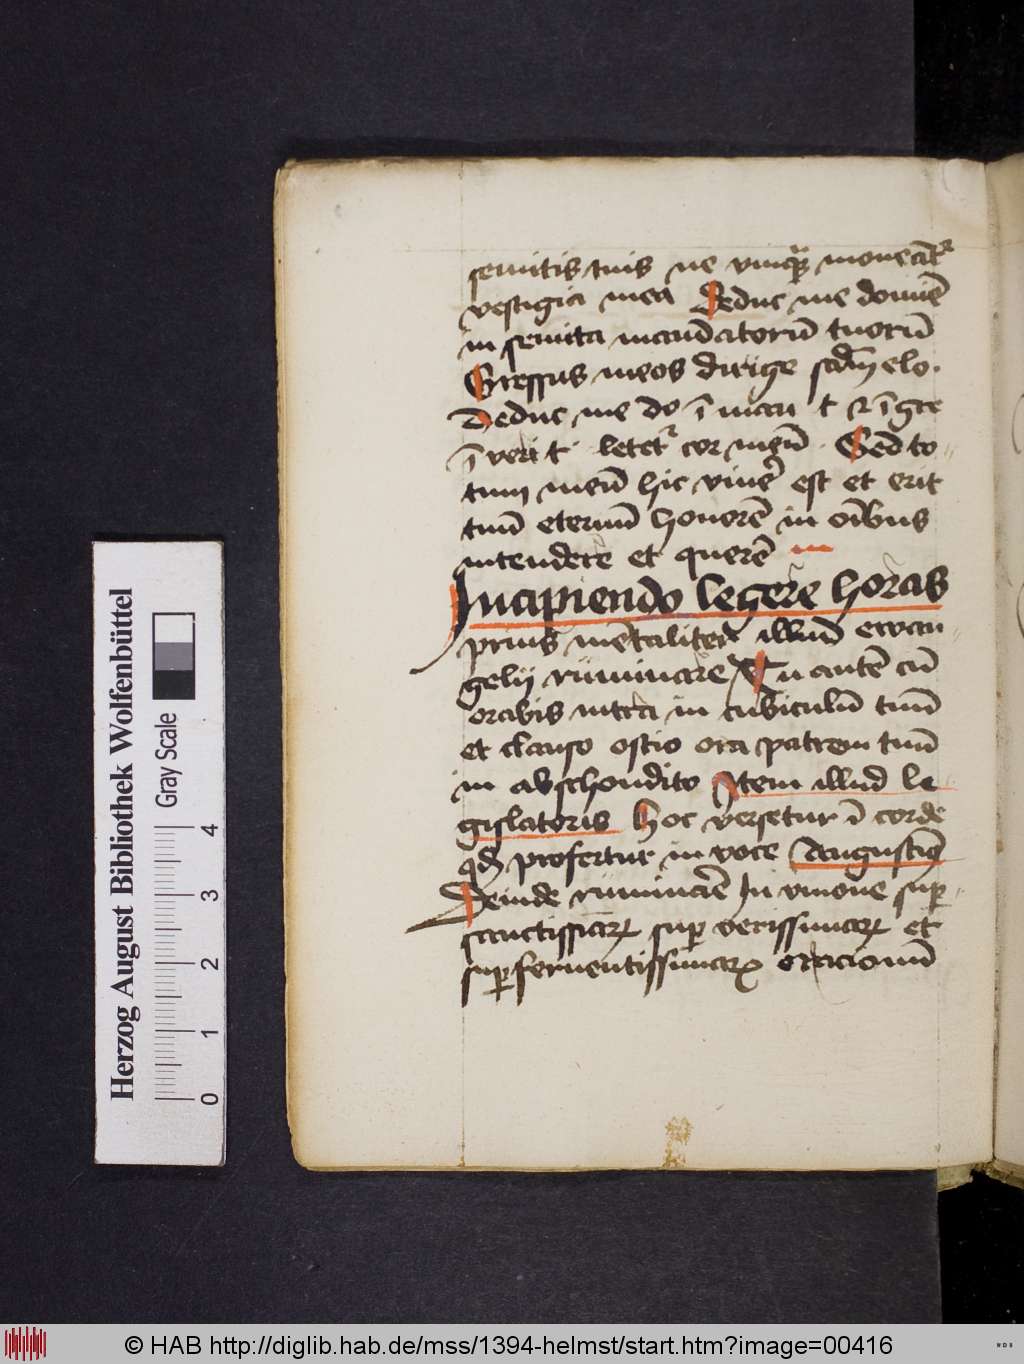 semitis tuis ne vmqᷓ moueāt᷑
vestigia mea Deduc me domiē
in semita mandatorū tuorū
Gressus meos dirige scdm elo·
Deduc me do ī man t ⁊ īgre
ī veri t· letet᷑ cor meū · Sed to-
tum meū hic viuē est et erit
tuū eternū honorē in oībus
intendere et querē
Incipiendo legere horas
prius mētaliter illud ewan-
gelij ruminare Tu autē cū
orabis intra in cubiculū tuū
et clauso ostio ora patrem tuū
in abschondito Item illud le
gislatoris Hoc versetur ī corde
qd profertur in voce Augustiꝯ
Deinde ruminarē in vnione sup-
sanctissiāꝝ sup verissimaꝝ et
supferuentissimaꝝ oracionū
Herzog August Bibliothek Wolfenbüttel
Gray Scale
0 1 2 3 4
© HAB http://diglib.hab.de/mss/1394-helmst/start.htm?image=00416